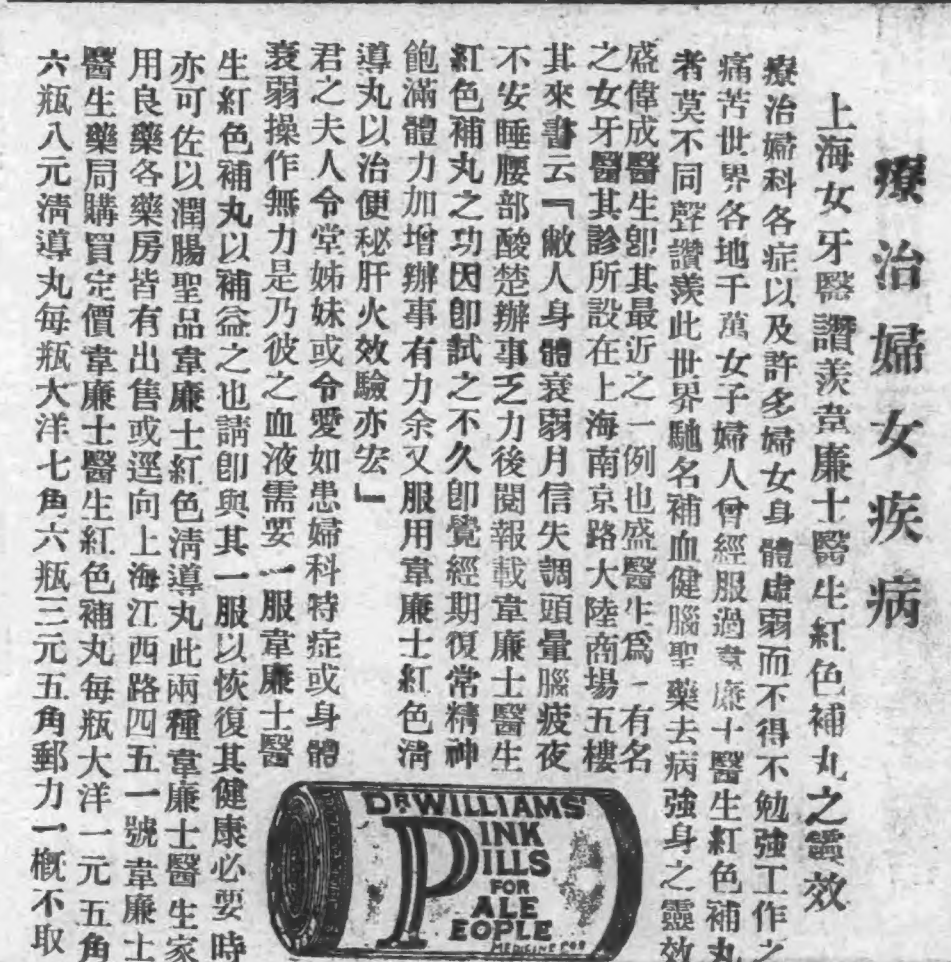 療治婦女疾病
上海女牙醫讚羨韋廉士醫生紅色補丸之靈效
療治婦科各症以及許多婦女身體虛弱而不得不勉強工作之
痛苦世界各地千萬女子婦人曾經服過韋廉士醫生紅色補丸
者莫不同聲讚羨此世界馳名補血健腦聖藥去病強身之靈效
盛偉成醫生卽其最近之一例也盛醫生爲一有名
之女牙醫其診所設在上海南京路大陸商場五樓
其來書云『敝人身體衰弱月信失調頭暈腦疲夜
不安睡腰部酸楚辦事乏力後閱報載韋廉士醫生
紅色補丸之功因卽試之不久卽覺經期復常精神
飽滿體力加增辦事有力余又服用韋廉士紅色淸
導丸以治便秘肝火效驗亦宏』
君之夫人令堂姊妹或令愛如患婦科特症或身體
衰弱操作無力是乃彼之血液需要一服韋廉士醫
生紅色補丸以補益之也請卽與其一服以恢復其健康必要時
亦可佐以潤腸聖品韋廉士紅色淸導丸此兩種韋廉士醫生家
用良藥各藥房皆有出售或逕向上海江西路四五一號韋廉士
醫生藥局購買定價韋廉士醫生紅色補丸每瓶大洋一元五角
六瓶八元淸導丸每瓶大洋七角六瓶三元五角郵力一概不取
DR WILLIAMS'
PINK
PILLS
FOR
PALE
PEOPLE
MEDICINE CO